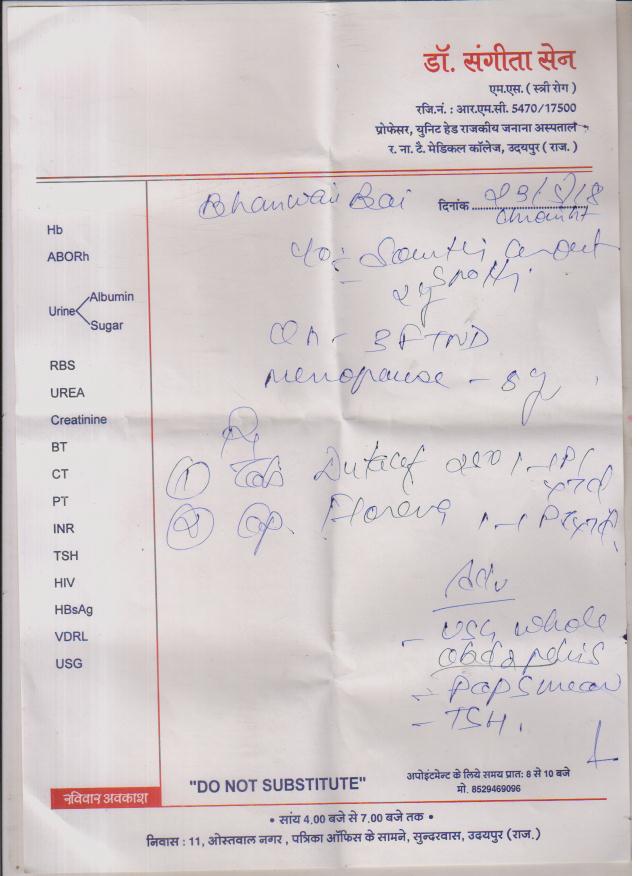 डॉ. संगीता सेन
एम.एस. ( स्त्री रोग )
रजि.नं. : आर.एम.सी. 5470/17500
प्रोफेसर, युनिट हेड राजकीय जनाना अस्पताल
र. ना. टै. मेडिकल कॉलेज, उदयपुर ( राज. )
Bhanwari Bai
दिनांक
Hb
ABORh
Urine Albumin
Sugar
RBS
UREA
Creatinine
BT
CT
PT
INR
TSH
HIV
HBsAg
VDRL
USG
3 FTND
menopause -
Rx
① Tab
② Cap.
Adv
- USG whole
abd & pelvis
- Pap smear
- TSH.
"DO NOT SUBSTITUTE"
अपोइंटमेन्ट के लिये समय प्रात: 8 से 10 बजे
मो. 8529469096
रविवार अवकाश
• सांय 4.00 बजे से 7.00 बजे तक •
निवास : 11, ओस्तवाल नगर , पत्रिका ऑफिस के सामने, सुन्दरवास, उदयपुर (राज.)